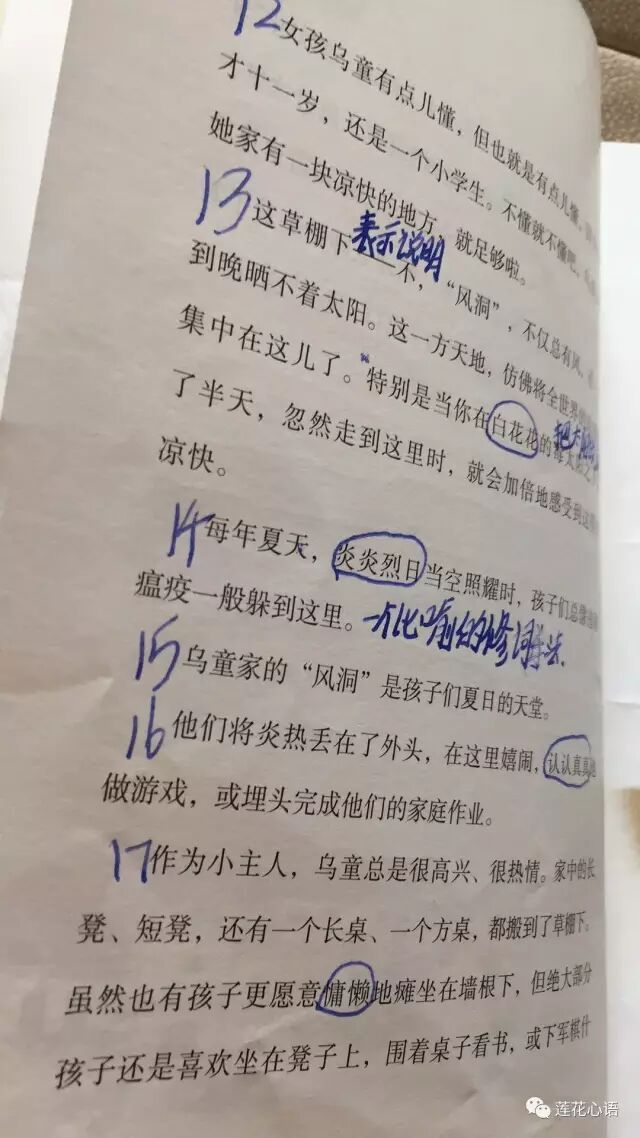 12 女孩乌童有点儿懂，但也就是有点儿懂。
才十一岁，还是一个小学生。不懂就不懂吧，
她家有一块凉快的地方，就足够啦。
13 这草棚下——不，“风洞”，不仅总有风，
表示说明
到晚晒不着太阳。这一方天地，仿佛将全世界
集中在这儿了。特别是当你在白花花的
了半天，忽然走到这里时，就会加倍地感受到这
凉快。
14 每年夏天，炎炎烈日当空照耀时，孩子们总像
瘟疫一般躲到这里。 一个比喻的修辞手法.
15 乌童家的“风洞”是孩子们夏日的天堂。
16 他们将炎热丢在了外头，在这里嬉闹，认认真真地
做游戏，或埋头完成他们的家庭作业。
17 作为小主人，乌童总是很高兴、很热情。家中的长
凳、短凳，还有一个长桌、一个方桌，都搬到了草棚下。
虽然也有孩子更愿意慵懒地瘫坐在墙根下，但绝大部分
孩子还是喜欢坐在凳子上，围着桌子看书，或下军棋什
莲花心语